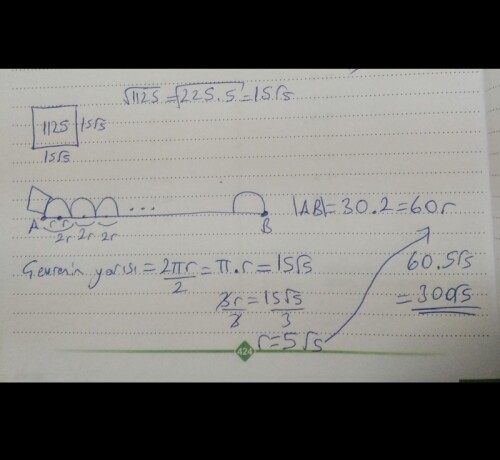 √1125 = √225.5 = 15√5
1125 15√5
15√5
A r r 2r 2r 2r ... B |AB| = 30.2 = 60r
Çevrenin yarısı = 2πr/2 = π.r = 15√5
3r/3 = 15√5/3
r = 5√5
60.5√5
= 300√5
424